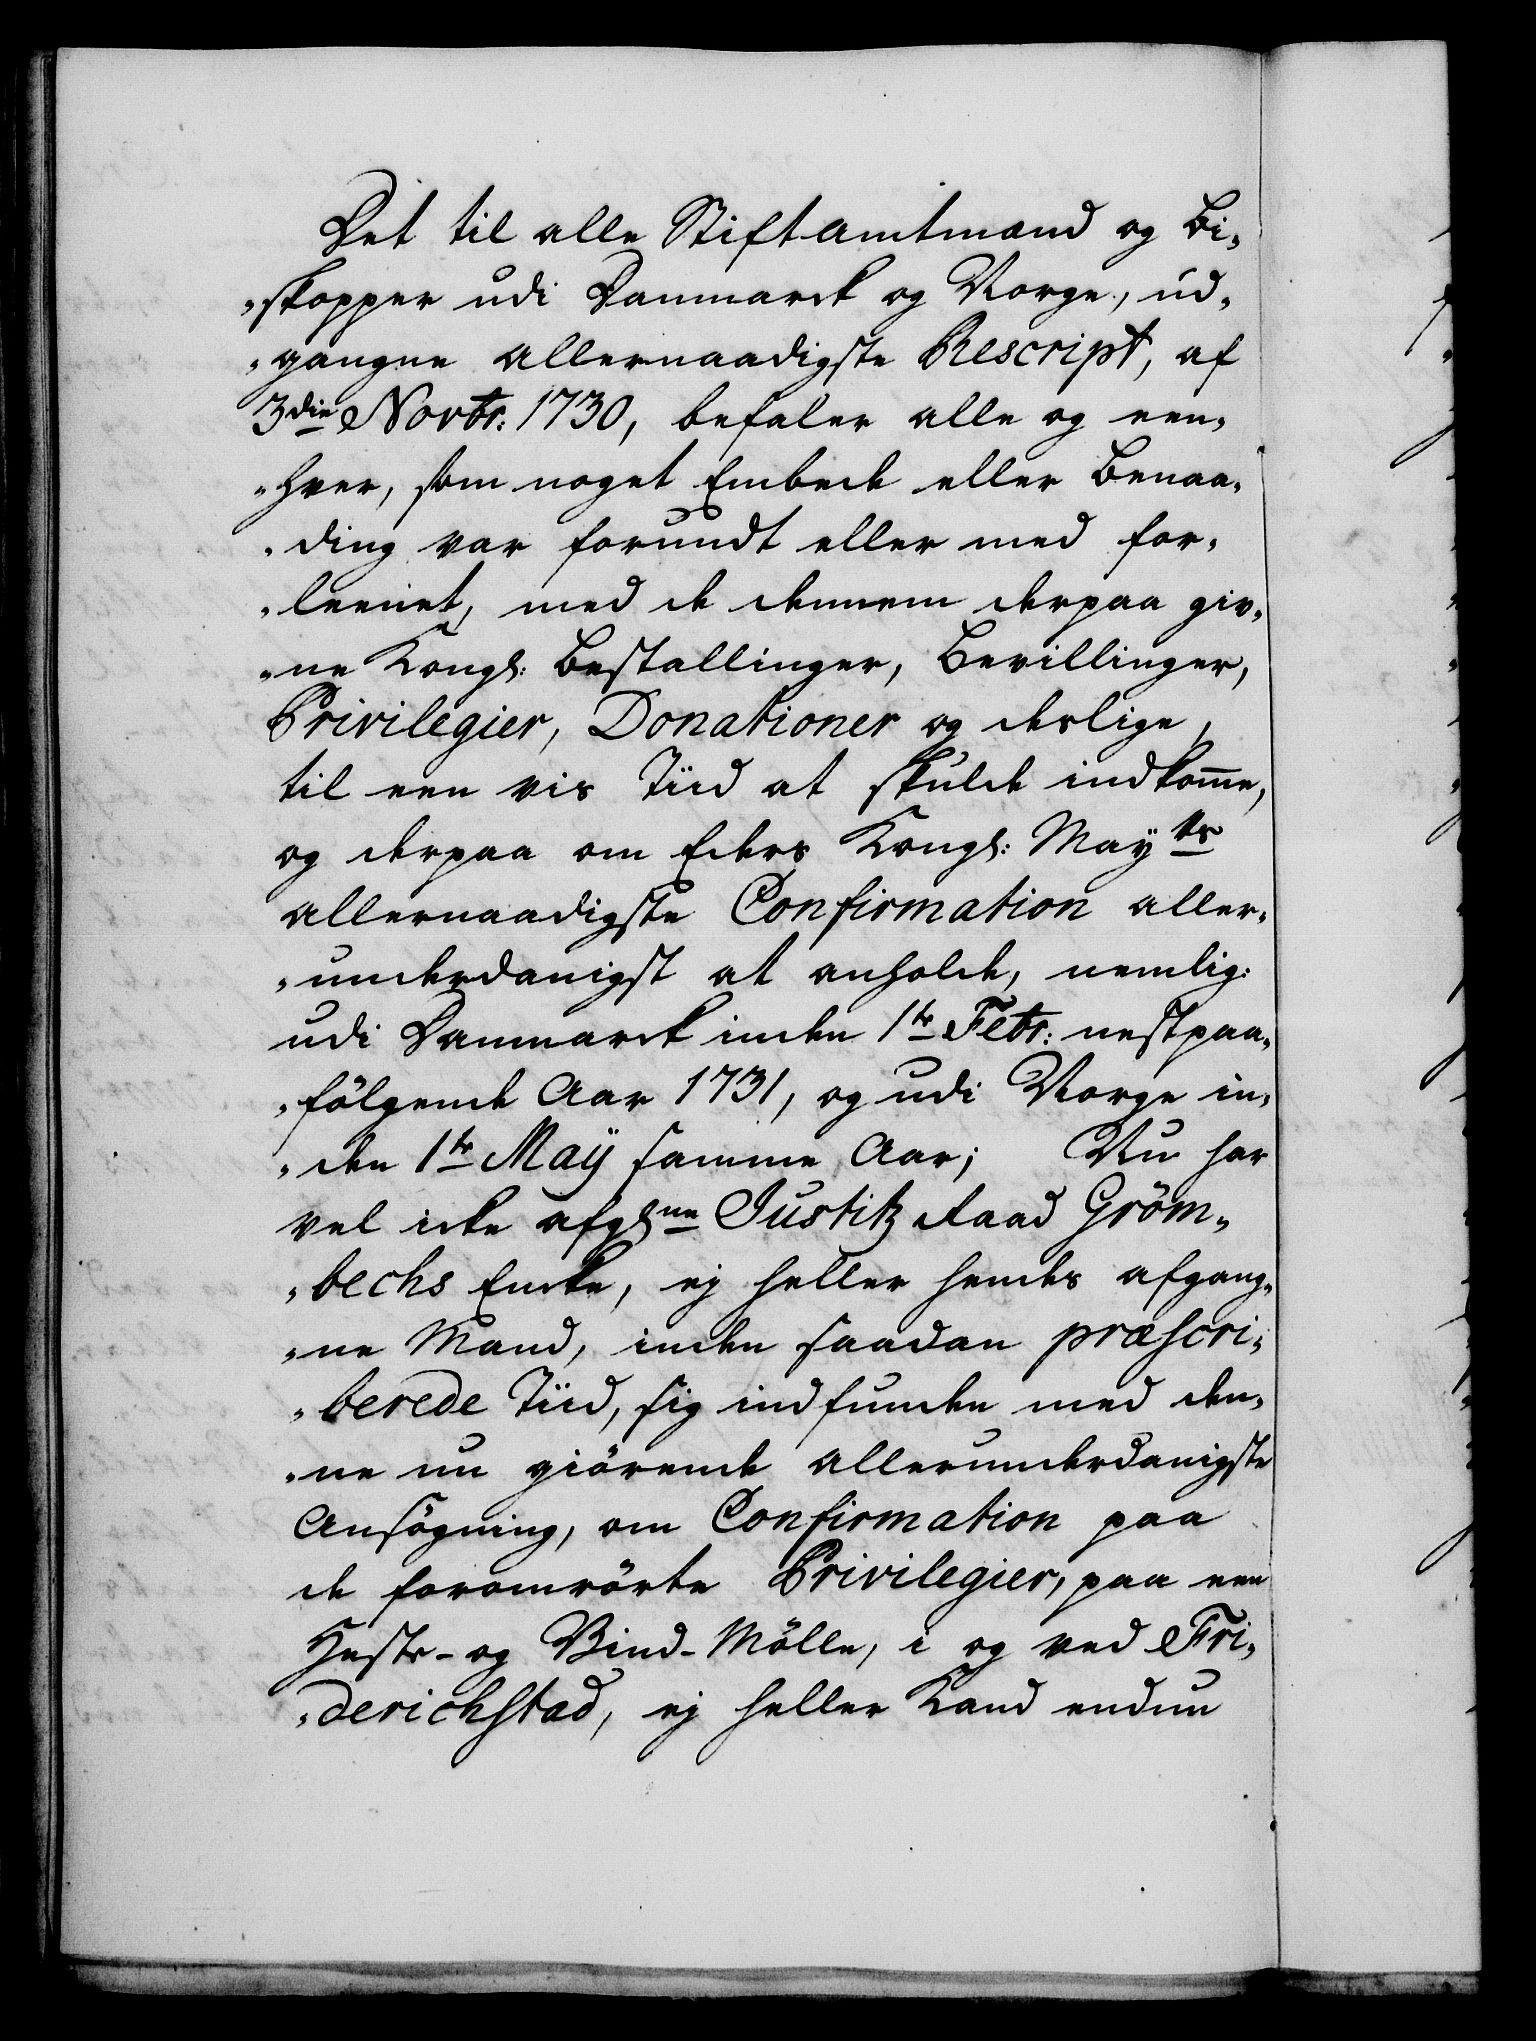 Det til alle Stiftamtmænd og Bi„
„skopper udi Danmarck og Norge, ud„
„gangne allernaadigste Rescript, af
3die Novbr: 1730, befaler alle og een„
„hver, som noget Embede eller Benaa„
„ding var forundt eller med for„
„leenet, med de dennem derpaa giv„
„ne Kongl: Bestallinger, Bevillinger,
Privilegier, Donationer og deslige,
til een vis Tiid at skulde indkom̅e,
og derpaa om Eders Kongl: Mayts
allernaadigste Confirmation aller„
„underdanigst at anholde, nemlig:
udi Danmarck inden 1te Febr: nestpaa„
„fölgende Aar 1731, og udi Norge in„
„den 1te Maÿ samme Aar; Nu har
vel icke afgl:ne Justitz Raad Gröm„
„bechs Encke, ej heller hendes afgang„
„ne Mand, inden saadan præscri„
„berede Tiid, sig indfunden med den„
„ne nu giörende allerunderdanigste
Ansögning, om Confirmation paa
de foromrörte Privilegier, paa een
Heste- og Vind-Mölle, i og ved Fri„
„derichstad, ej heller Kand endnu